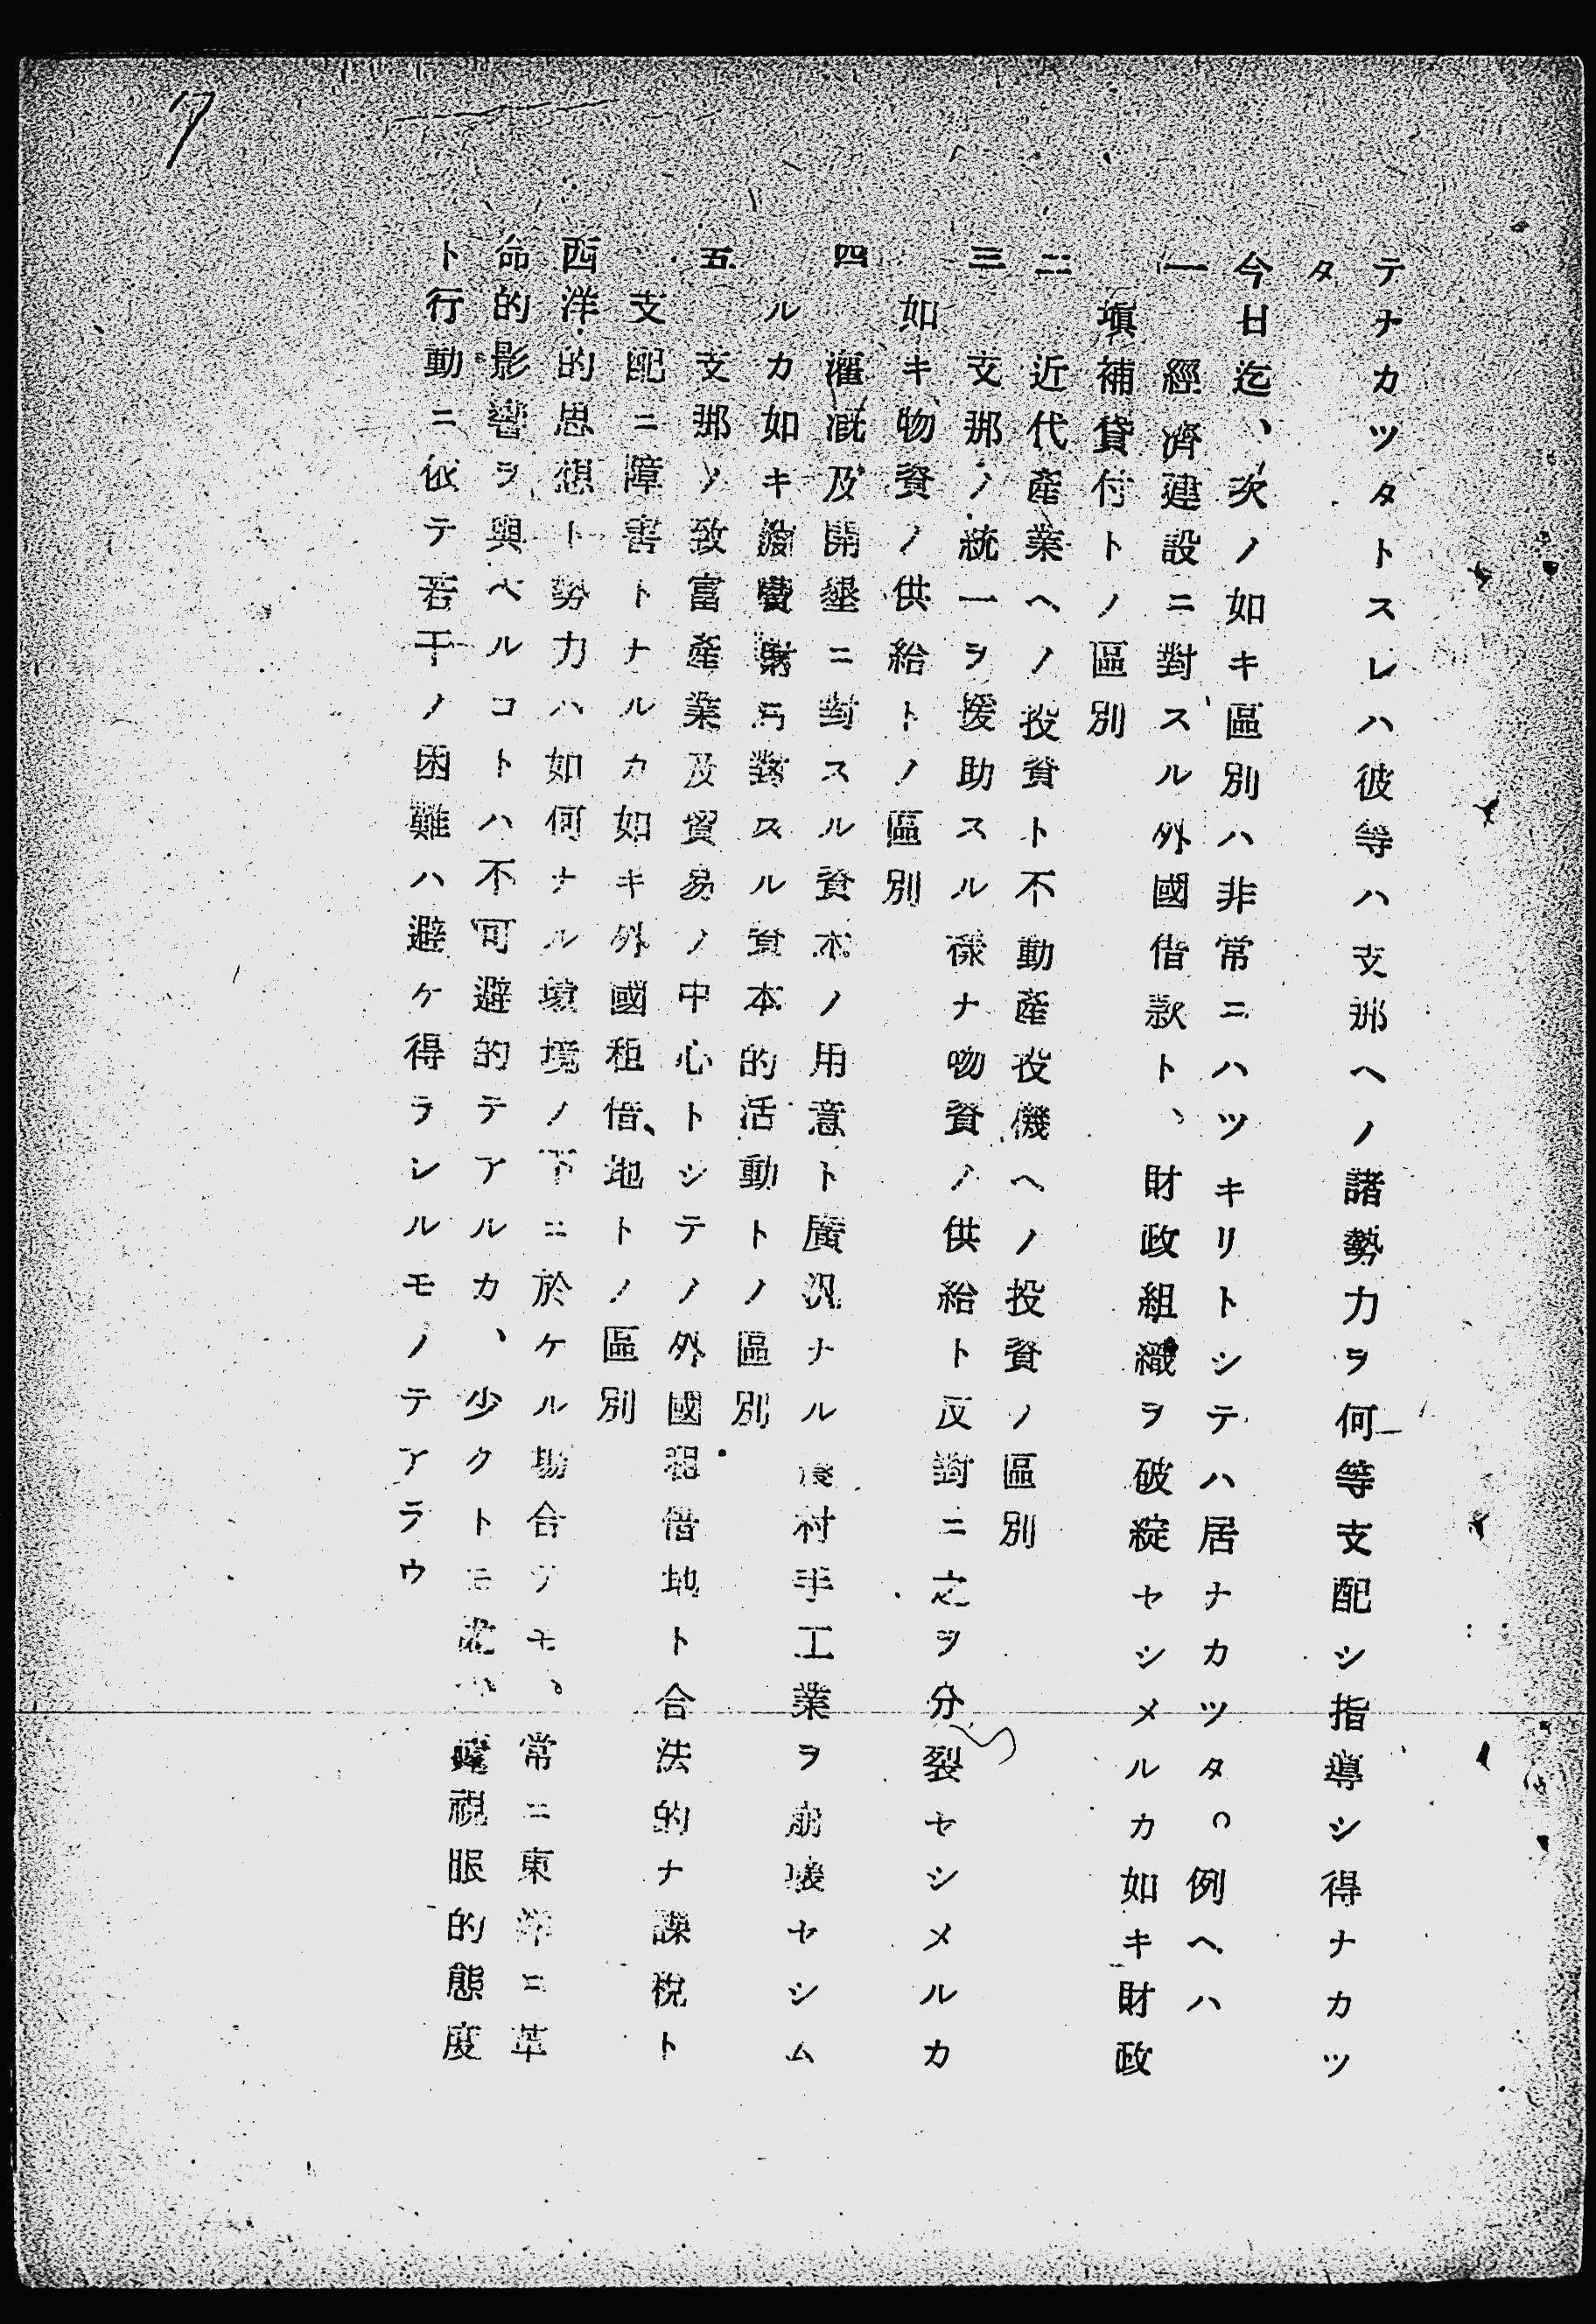 7
テナカツタトスレハ彼等ハ支那ヘノ諸勢力ヲ何等支配シ指導シ得ナカツ
タ
今日迄、次ノ如キ區別ハ非常ニハツキリトシテハ居ナカツタ。例ヘハ
一 經濟建設ニ對スル外國借款ト、財政組織ヲ破綻セシメルカ如キ財政
塡補貸付トノ區別
二 近代產業ヘノ投資ト不動產投機ヘノ投資ノ區別
三 支那ノ統一ヲ援助スル樣ナ物資ノ供給ト反對ニ之ヲ分裂セシメルカ
如キ物資ノ供給トノ區別
四 灌漑及開墾ニ對スル資本ノ用意ト廣汎ナル農村手工業ヲ崩壞セシム
ルカ如キ消費財ニ對スル資本的活動トノ區別
五 支那ノ致富產業及貿易ノ中心トシテノ外國租借地ト合法的ナ課稅ト
支配ニ障害トナルカ如キ外國租借地トノ區別
西洋的思想ト勢力ハ如何ナル環境ノ下ニ於ケル場合テモ、常ニ東洋ニ革
命的影響ヲ與ベルコトハ不可避的テアルカ、少クトモ 視眼的態度
ト行動ニ依テ若干ノ困難ハ避ケ得ラレルモノテアラウ